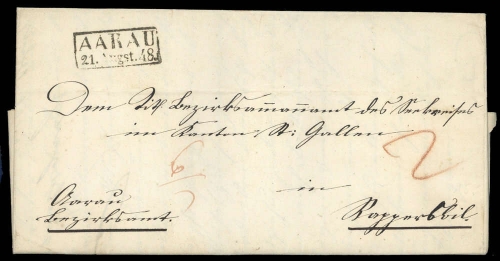 AARAU
21. Augst. 48.
Dem Tit. Bezirksammannamt des Seekreises
im Kanton St: Gallen
2
in
Aarau
Bezirksamt.
Rapperschwil.